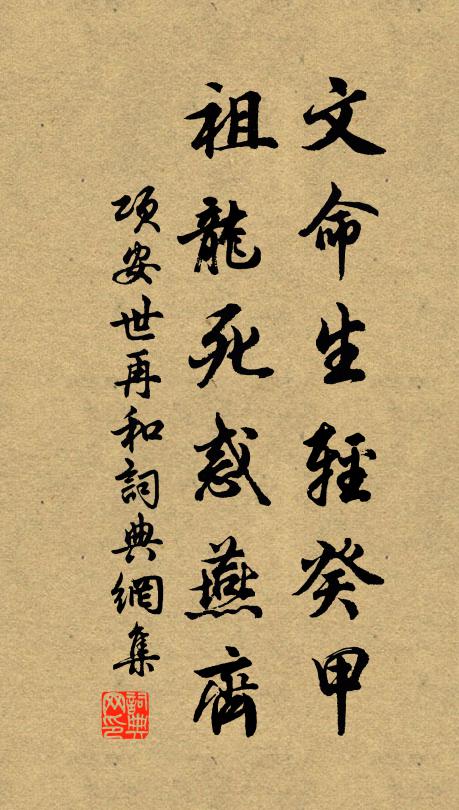 文命生輕癸甲
祖龍死惑燕齊
項安世再和詞典網集
詞典网印